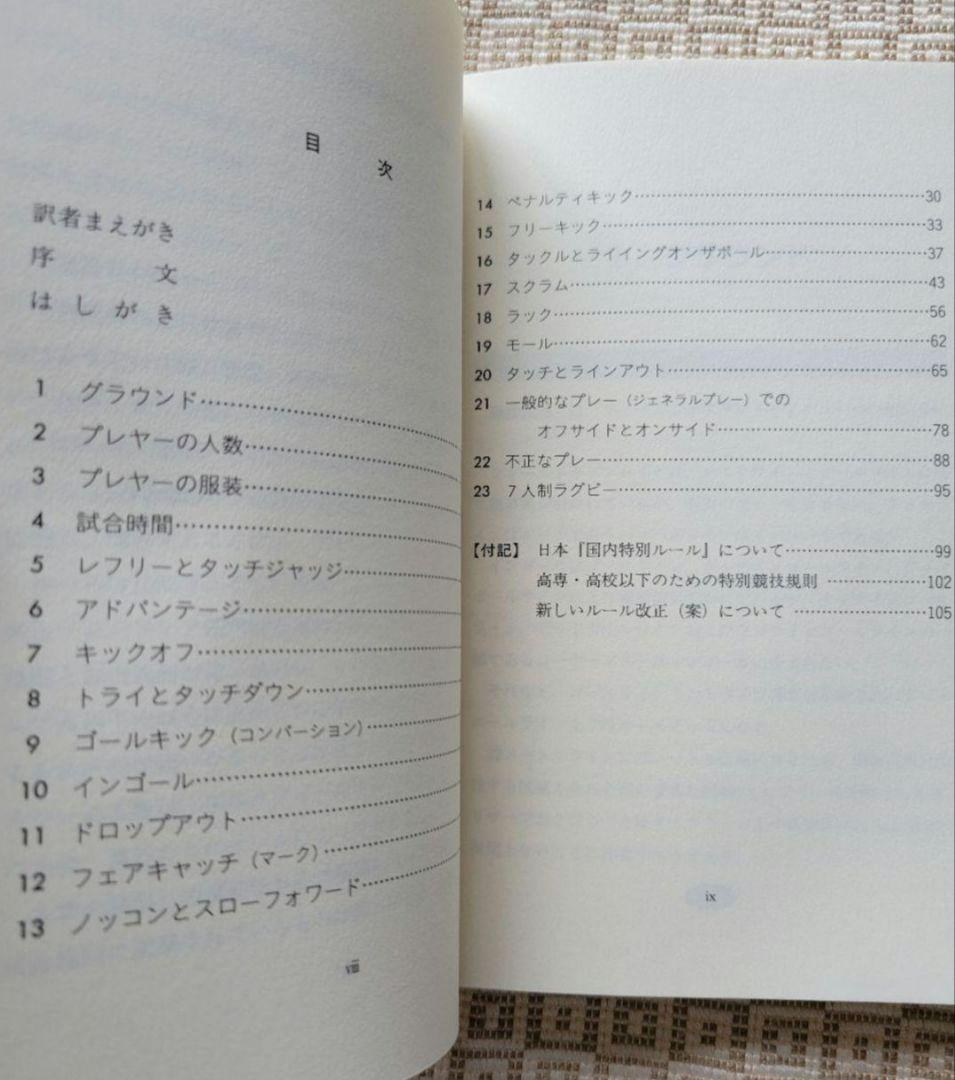 目次
訳者まえがき
序文
はしがき
1 グラウンド
2 プレヤーの人数
3 プレヤーの服装
4 試合時間
5 レフリーとタッチジャッジ
6 アドバンテージ
7 キックオフ
8 トライとタッチダウン
9 ゴールキック（コンバーション）
10 インゴール
11 ドロップアウト
12 フェアキャッチ（マーク）
13 ノッコンとスローフォワード
viii
14 ペナルティキック……30
15 フリーキック……33
16 タックルとライイングオンザボール……37
17 スクラム……43
18 ラック……56
19 モール……62
20 タッチとラインアウト……65
21 一般的なプレー（ジェネラルプレー）での
オフサイドとオンサイド……78
22 不正なプレー……88
23 7人制ラグビー……95
【付記】 日本『国内特別ルール』について……99
高専・高校以下のための特別競技規則……102
新しいルール改正（案）について……105
ix